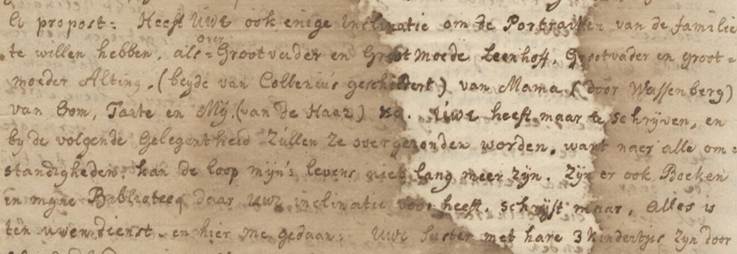 à propost: Heeft Uwe ook enige Inclinatie om de Portraitten van de familie
te willen hebben, als over Grootvader en Grootmoede Leenhoff, Grootvader en groot=
moeder Alting, (beyde van Collenius geschildert) van Mama (door Wassenberg)
van Oom, Tante en Mij, (van De Haen) &c. Uwe heeft maar te schrijven, en
by de volgende Gelegentheid zullen ze overgezonden worden, want naer alle om=
standigheden, kan de loop mijn's levens niet lang meer zijn. Zijn er ook Boeken
in mijne Bibliotheeq daar Uwe inclinatie voor heeft, schrijft maar, Alles is
tên uwen dienst, en hier me gedaan. Uwe Suster met hare 3 kindertjes zyn door